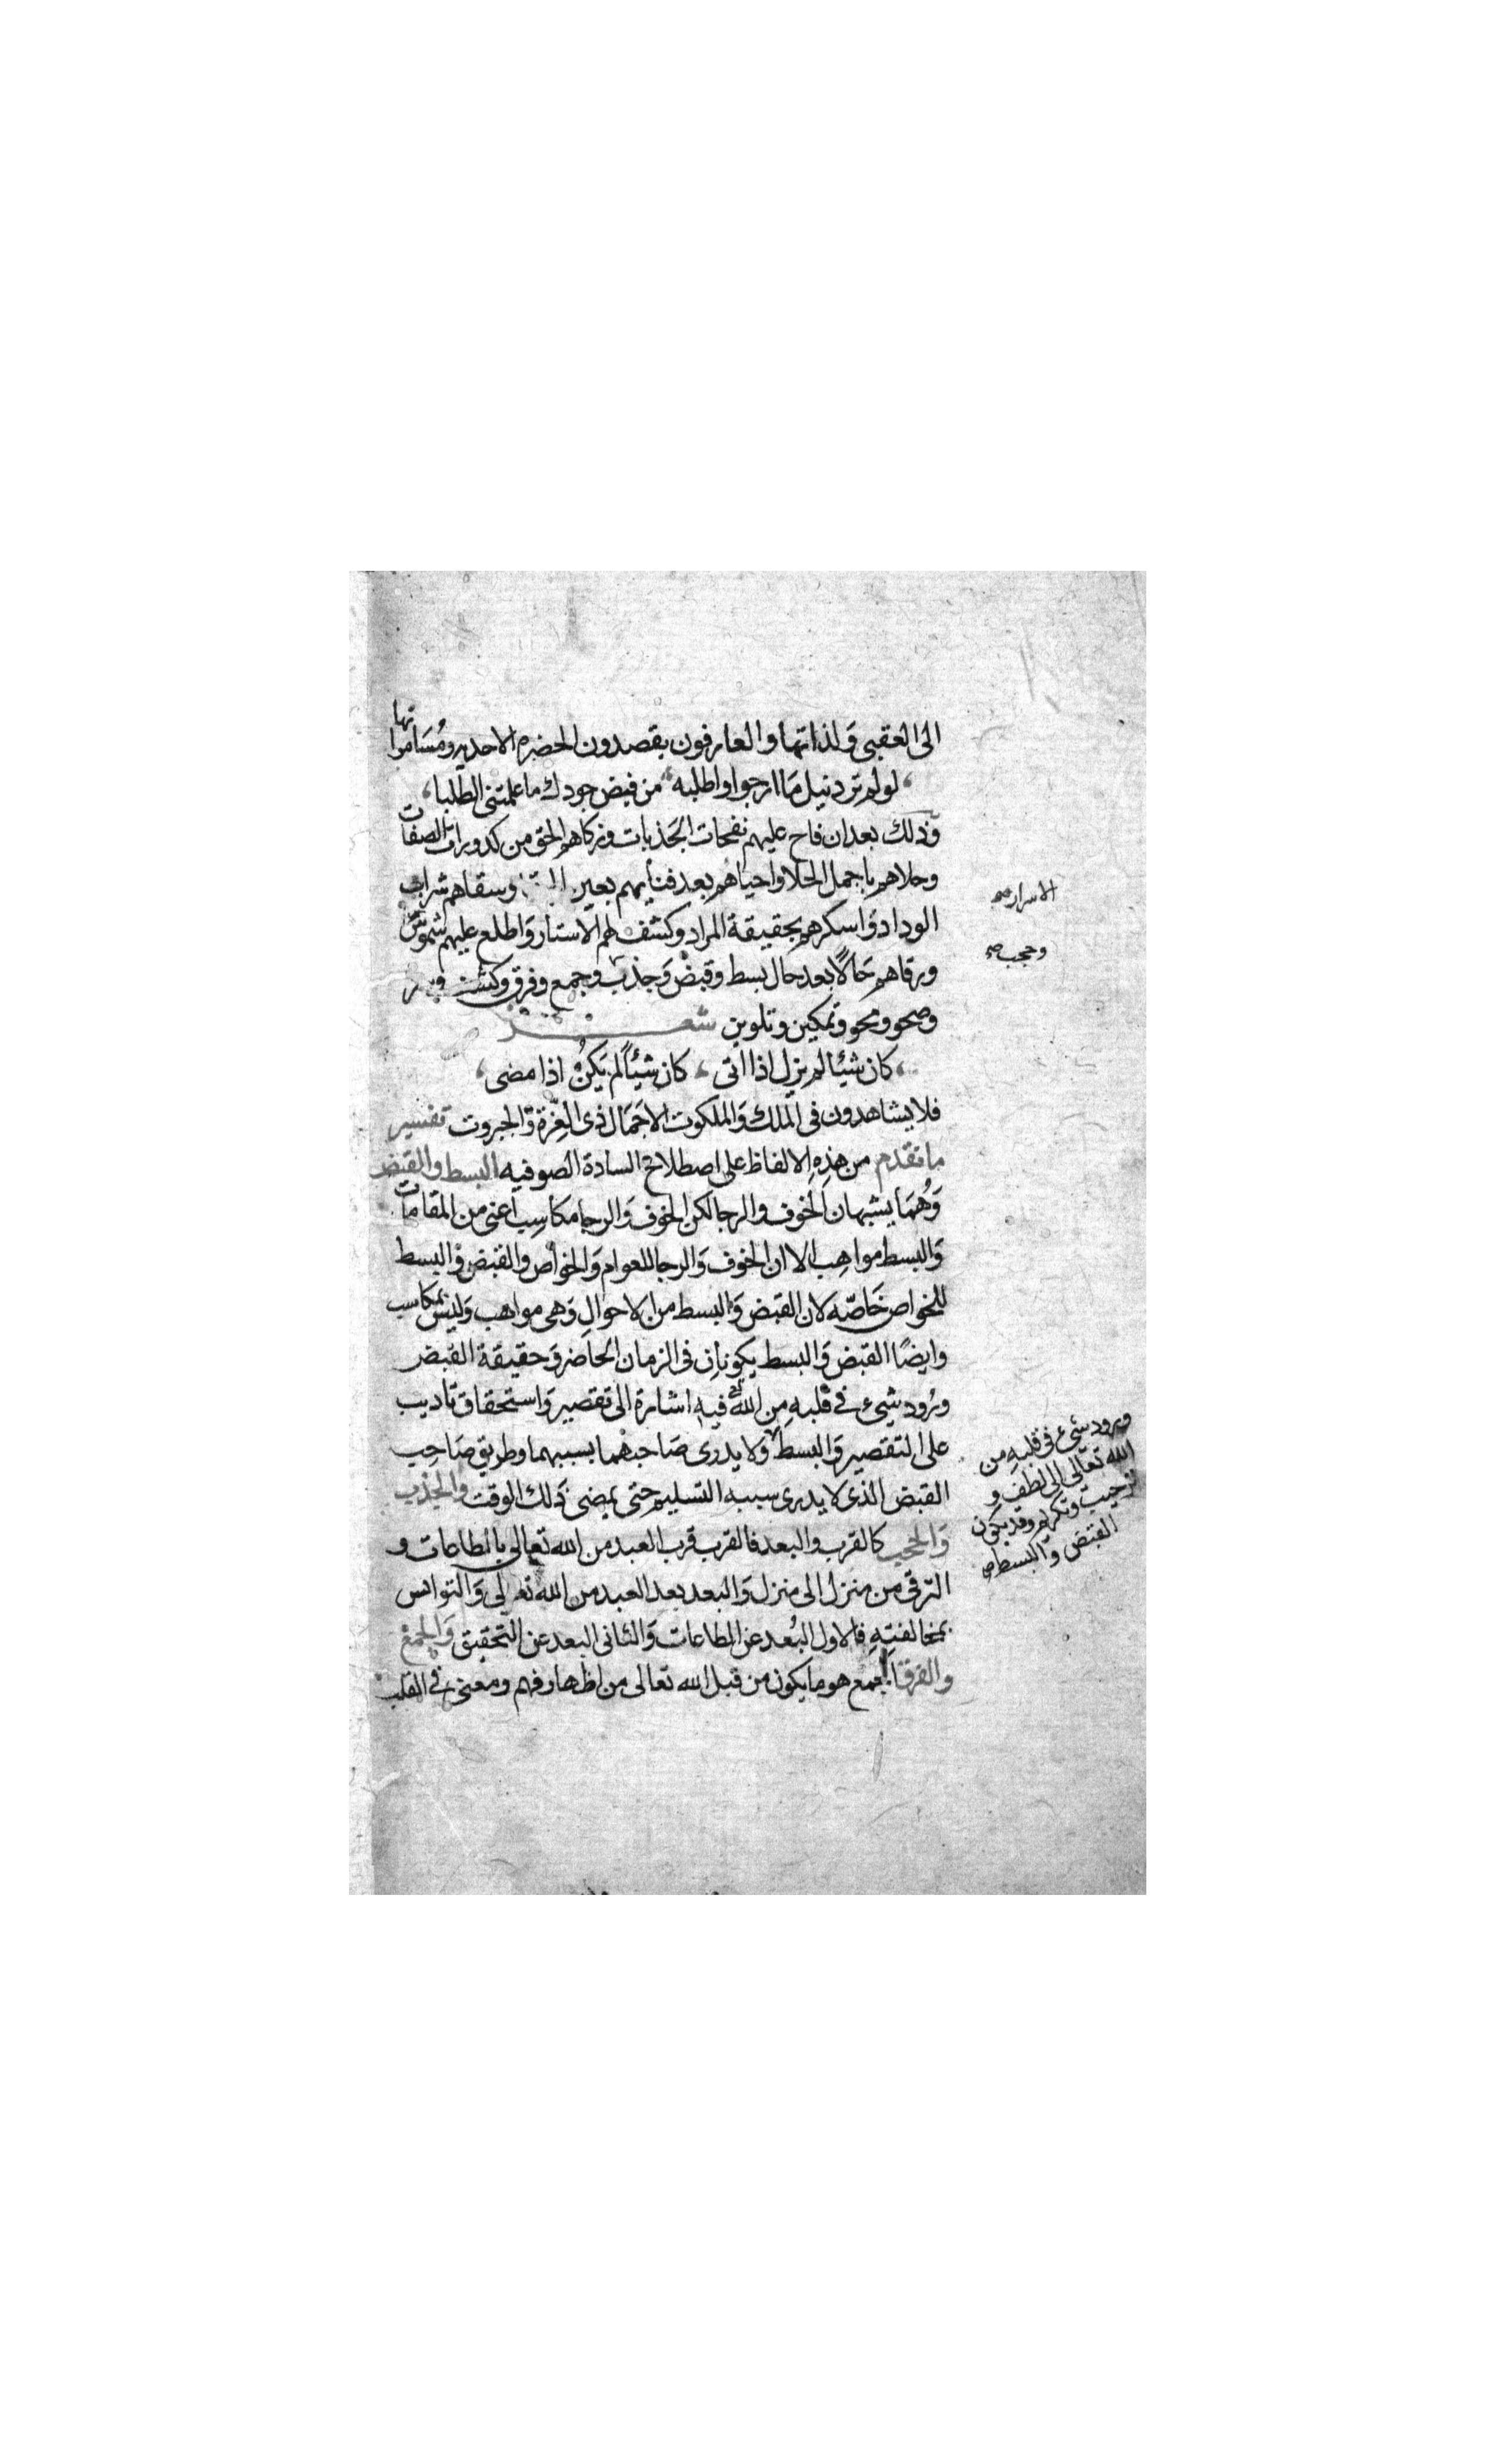 الى العقبى وَلذاتها والعارفون يقصدون الحضرة الاحديه ومُسَامراتها
لو لم ترد نيل مَا ارجوا واطلبه من فيض جودك ما علمتنى الطلبا
وَذلك بعد ان فاح عليهم نفحات الجَذبات وزكاهم الحق من كدورات الصفات
وحلاهم باجمل الحلا واحياهم بعد فنايهم بعين وسقاهم شراب
الوداد وَاسكرهم بحقيقة المراد وكشف لهم الاستار وَاطلع عليهم شموس
الاسرار صح
ورقاهم حَالاً بعد حال بسط وقبض وَجذب وجمع وفرق وكشف
وحجب صح
وصحو ومحو وتمكين وتلوين شعر
كان شيئا لم يزل اذا اتى كان شيئاً لم يَكنُ اذا مضى
فلا يشاهدون فى الملك وَالملكوت الا جَمَال ذى العِزّة وَالجبروت تفسير
ما تقدم من هذِه الالفاظ على اصطلاح السادة الصوفيه البسط والقبض
وَهُمَا يشبهان الخوف والرجا لكن الخوف وَالرجا مكاسِب اعنى من المقامات
وَالبسط مواهِب الا ان الخوف وَالرجا للعوام وَالخواص والقبض وَالبسط
للخواص خَاصّه لان القبض وَالبسط من الاحوالِ وَهى مواهب وَليس بمكاسب
وايضًا القبض وَالبسط يكونانِ فى الزمان الحاضر وَحقيقة القبض
ورُود شىء فى قلبهِ مِن الله فيه اشارة الى تقصير وَاستحقاق تاديب
على التقصير وَالبسط ولا يدرى صَاحبهما بسببهما وطريق صَاحِب
ورود شىء فى قلبهِ من
الله تعالى الى لطف و
ترحيب وتكريم وقد يكون
القبض وَالبسط صح
القبض الذى لا يدرى سببه التسليم حتى يمضى ذَلك الوقت والجذب
وَالحجب كالقرب والبعد فالقرب قرب العبد من الله تعالى بالطاعات و
الترقى من منزل الى منزل وَالبعد بعد العبد من الله تعالى وَالتوانس
بمخالفتهِ فالاول البُعد عن الطاعات وَالثانى البعد عن التحقيق وَالجمع
والفرق الجمع هو ما يكون من قبل الله تعالى من اظهار فهم ومعنى فى القلب